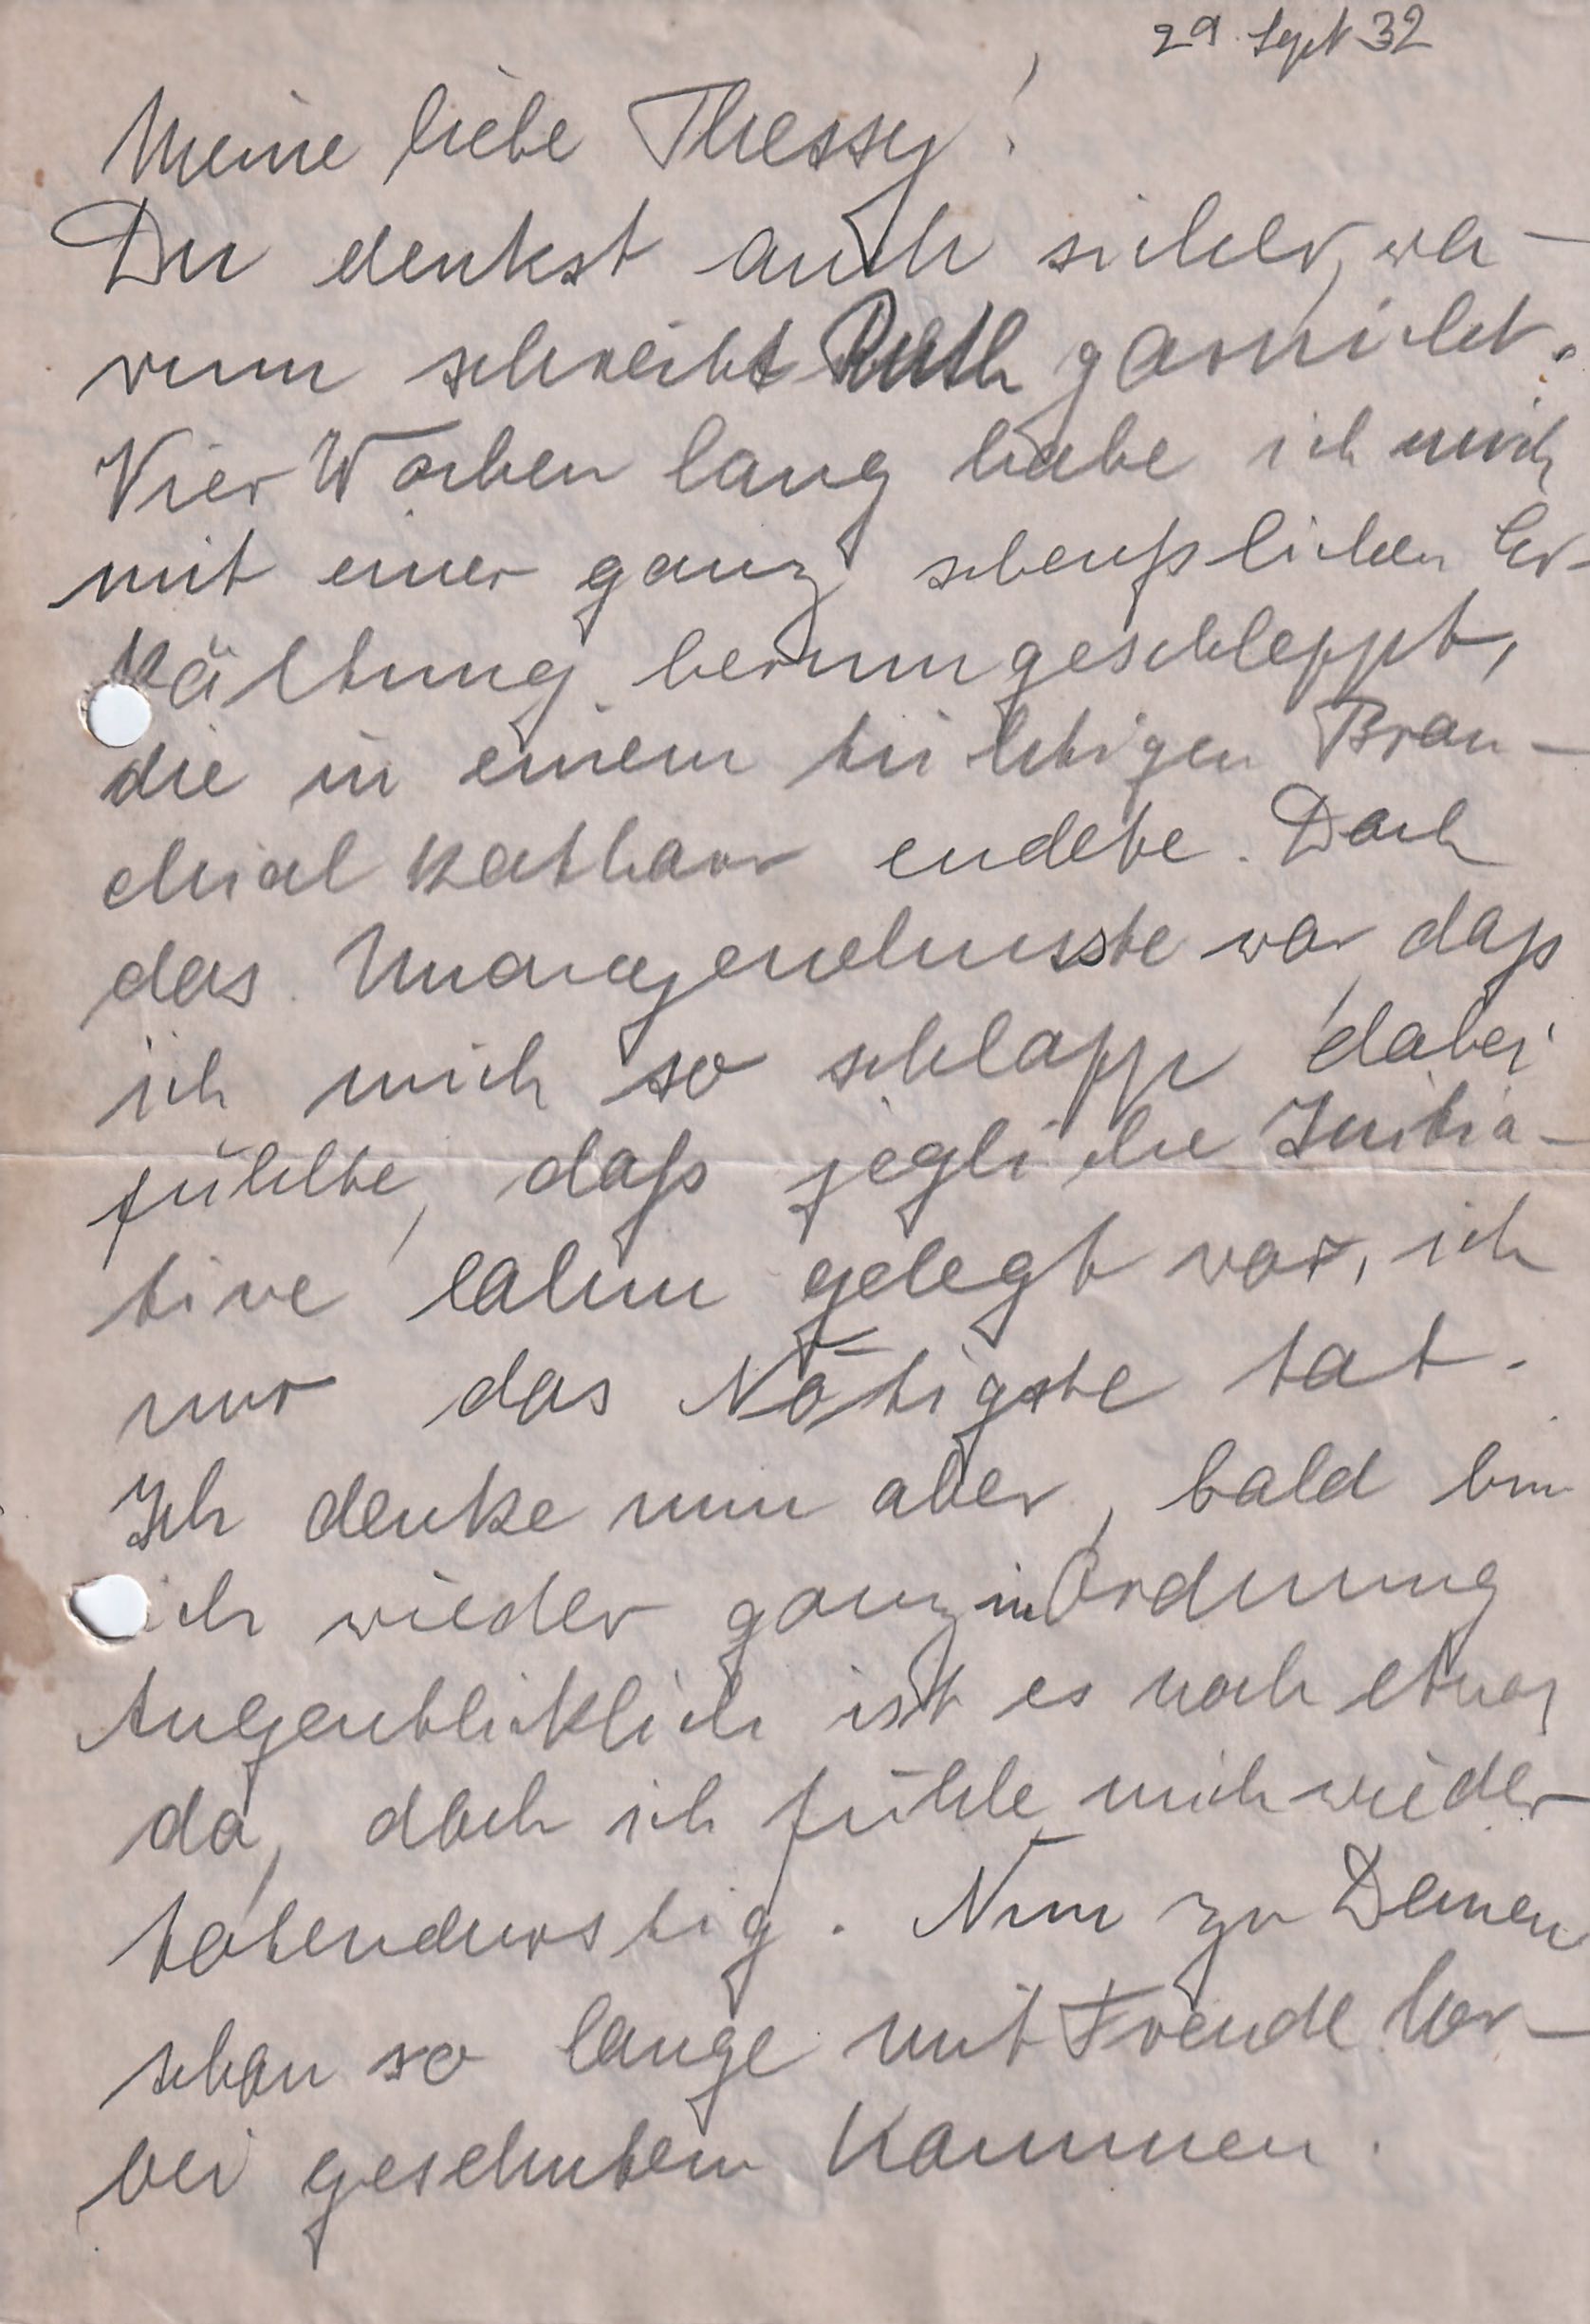 29. Sept 32
Meine liebe Thessy!
Du denkst auch sicher, wa-
rum schreibt Ruth garnicht.
Vier Wochen lang habe ich mich
mit einer ganz scheußlichen Er-
kältung herumgeschleppt,
die in einem tüchtigen Bron-
chial Katharr endete. Doch
das Unangenehmste war, daß
ich mich so schlapp dabei
fühlte, daß jegliche Initia-
tive lahm gelegt war, ich
nur das Nötigste tat.
Ich denke nun aber, bald bin
ich wieder ganz in Ordnung
Augenblicklich ist es noch etwas
da, doch ich fühle mich wieder
tatendurstig. Nun zu Deinen
schon so lange mit Freude
bei Kommen.